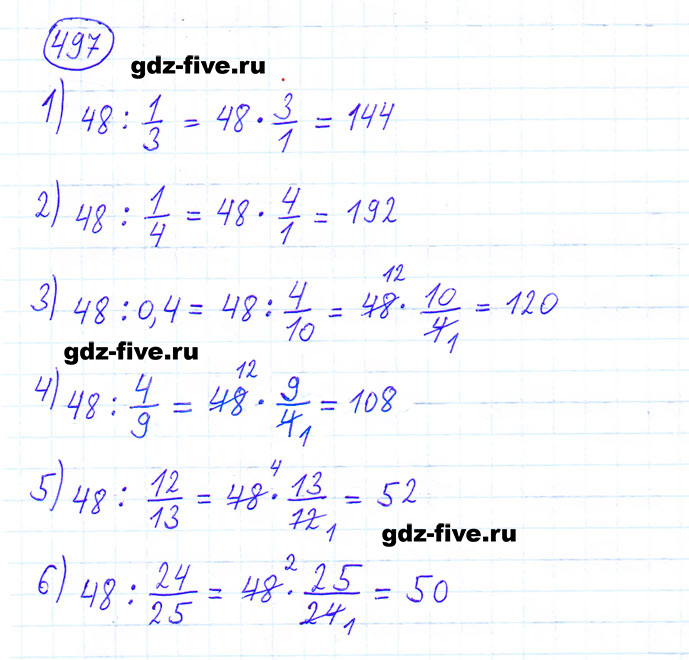 497
gdz-five.ru
1) 48 : 1/3 = 48 · 3/1 = 144
2) 48 : 1/4 = 48 · 4/1 = 192
3) 48 : 0,4 = 48 : 4/10 = 48 12 · 10/4 1 = 120
gdz-five.ru
4) 48 : 4/9 = 48 12 · 9/4 1 = 108
5) 48 : 12/13 = 48 4 · 13/12 1 = 52
gdz-five.ru
6) 48 : 24/25 = 48 2 · 25/24 1 = 50